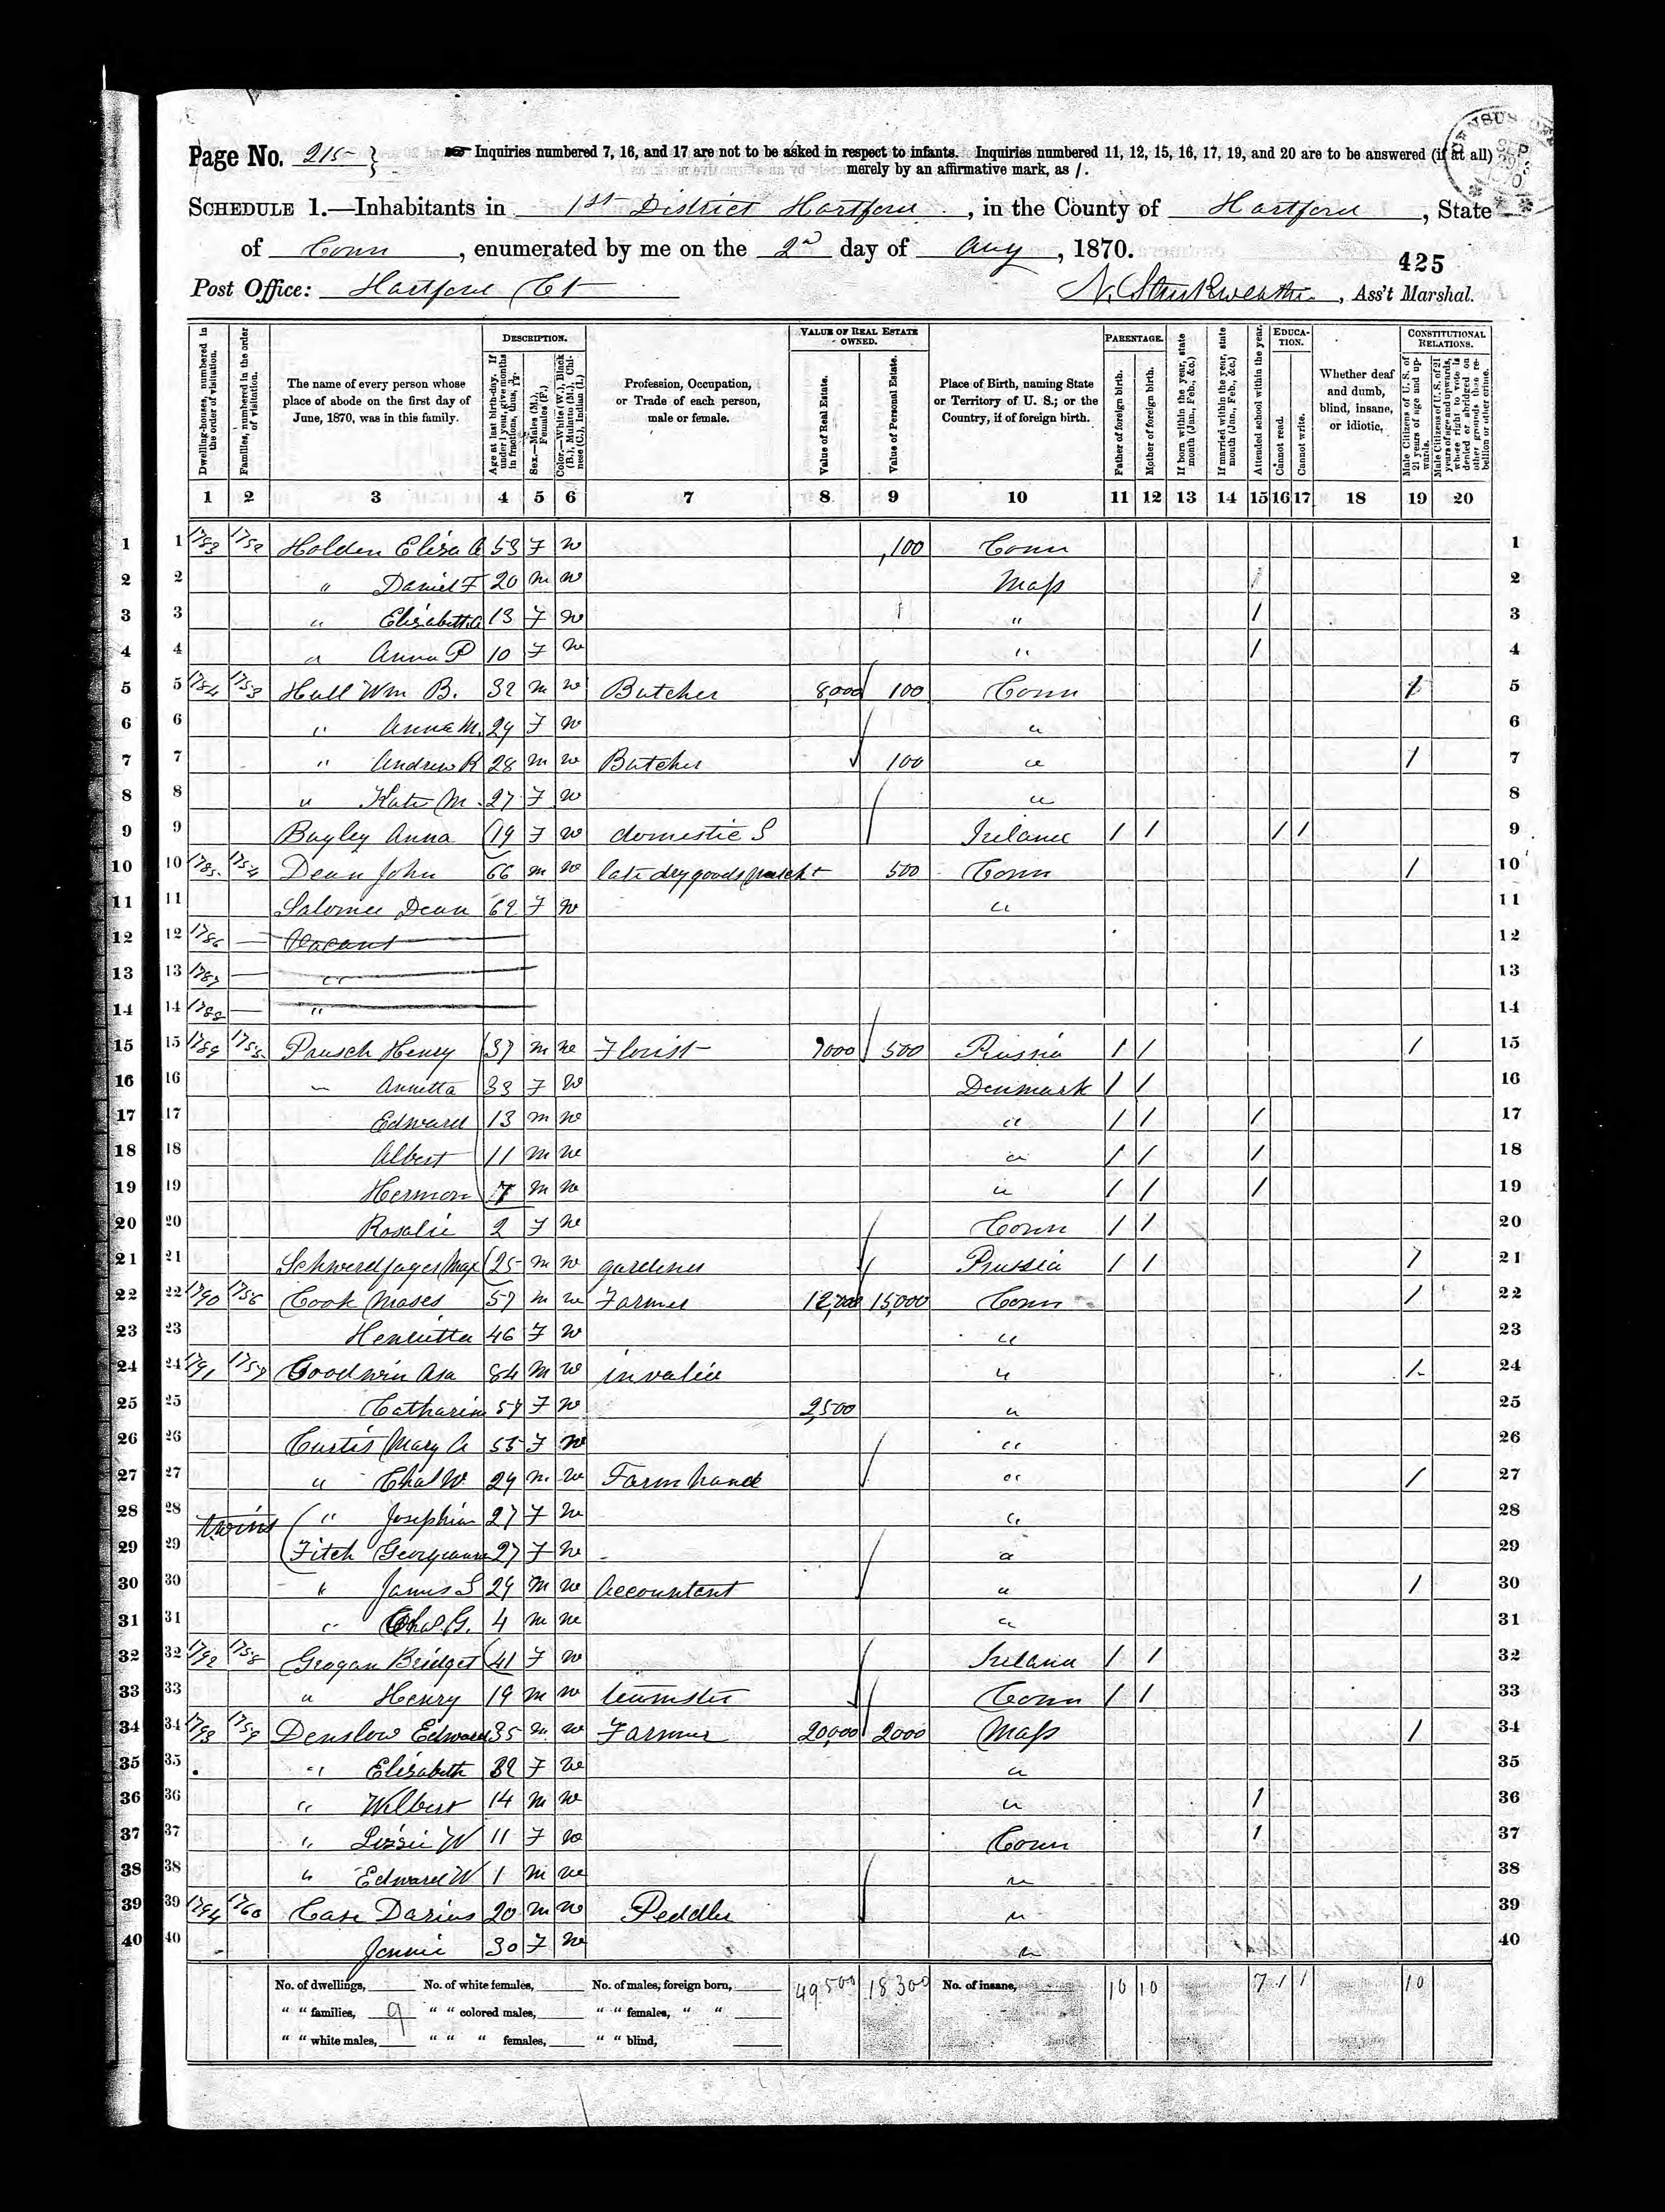 Page No. 215
Inquiries numbered 7, 16, and 17 are not to be asked in respect to infants. Inquiries numbered 11, 12, 15, 16, 17, 19, and 20 are to be answered (if at all)
merely by an affirmative mark, as /.
SCHEDULE 1.—Inhabitants in 1st District Hartford, in the County of Hartford, State
of Conn, enumerated by me on the 2d day of Aug, 1870.
425
Post Office: Hartford Ct
N. Starkweather, Ass't Marshal.
Dwelling-houses, numbered in the order of visitation.
Families, numbered in the order of visitation.
The name of every person whose place of abode on the first day of June, 1870, was in this family.
DESCRIPTION.
Age at last birth-day. If under 1 year, give months in fractions, thus,
Sex.—Males (M.), Females (F.)
Color.—White (W.), Black (B.), Mulatto (M.), Chinese (C.), Indian (I.)
Profession, Occupation, or Trade of each person, male or female.
VALUE OF REAL ESTATE OWNED.
Value of Real Estate.
Value of Personal Estate.
Place of Birth, naming State or Territory of U. S.; or the Country, if of foreign birth.
PARENTAGE.
Father of foreign birth.
Mother of foreign birth.
If born within the year, state month (Jan., Feb., &c.)
If married within the year, state month (Jan., Feb., &c.)
Attended school within the year.
EDUCATION.
Cannot read.
Cannot write.
Whether deaf and dumb, blind, insane, or idiotic.
CONSTITUTIONAL RELATIONS.
Male Citizens of U. S. of 21 years of age and upwards.
Male Citizens of U. S. of 21 years of age and upwards, where right to vote is denied or abridged on other grounds than rebellion or other crime.
1 2 3 4 5 6 7 8 9 10 11 12 13 14 15 16 17 18 19 20
1 1783 1752 Holden Eliza A 53 F W 100 Conn
2 " Daniel F 20 M W Mass /
3 " Elizabeth A 13 F W " /
4 " Anna P 10 F W " /
5 1784 1753 Hall Wm B. 32 M W Butcher 8,000 100 Conn 1
6 " Anna M. 29 F W "
7 " Andrew R 28 M W Butcher 100 " /
8 " Kate M. 27 F W "
9 Bagley Anna 19 F W domestic S Ireland / / / /
10 1785 1754 Dean John 66 M W late dry goods mercht 500 Conn /
11 Salomee Dean 62 F W "
12 1786 — Vacant
13 1787 — "
14 1788 — "
15 1789 1755 Prusch Henry 37 M W Florist 7000 500 Prussia / / /
16 " Annetta 33 F W Denmark / /
17 Edward 13 M W " / / /
18 Albert 11 M W " / / /
19 Hermon 7 M W " / / /
20 Rosalie 2 F W Conn / /
21 Schwerdfager Max 25 M W gardener Prussia / / /
22 1790 1756 Cook Moses 57 M W Farmer 12,000 15,000 Conn /
23 Henrietta 46 F W "
24 1791 1757 Goodwin Asa 84 M W invalid " /
25 Catharine 57 F W 2,500 "
26 Curtis Mary A 55 F W "
27 " Chas W. 29 M W Farm hand " /
28 twins " Josephine 27 F W "
29 Fitch Georgeanna 27 F W "
30 " James S 29 M W Accountant " /
31 " Chas G. 4 M W "
32 1792 1758 Grogan Bridget 41 F W Ireland / /
33 " Henry 19 M W teamster Conn / /
34 1793 1759 Denslow Edward 35 M W Farmer 20,000 2000 Mass /
35 " Elisabeth 32 F W "
36 " Wilbert 14 M W " /
37 " Lizzie W 11 F W Conn /
38 " Edward W 1 M W "
39 1794 1760 Case Darius 20 M W Peddler "
40 Jennie 30 F W "
No. of dwellings, No. of white females, No. of males, foreign born, 49,500 18300 No. of insane, 10 10 7 1 1 10
" " families, 9 " " colored males, " " females, " "
" " white males, " " " females, " " blind,